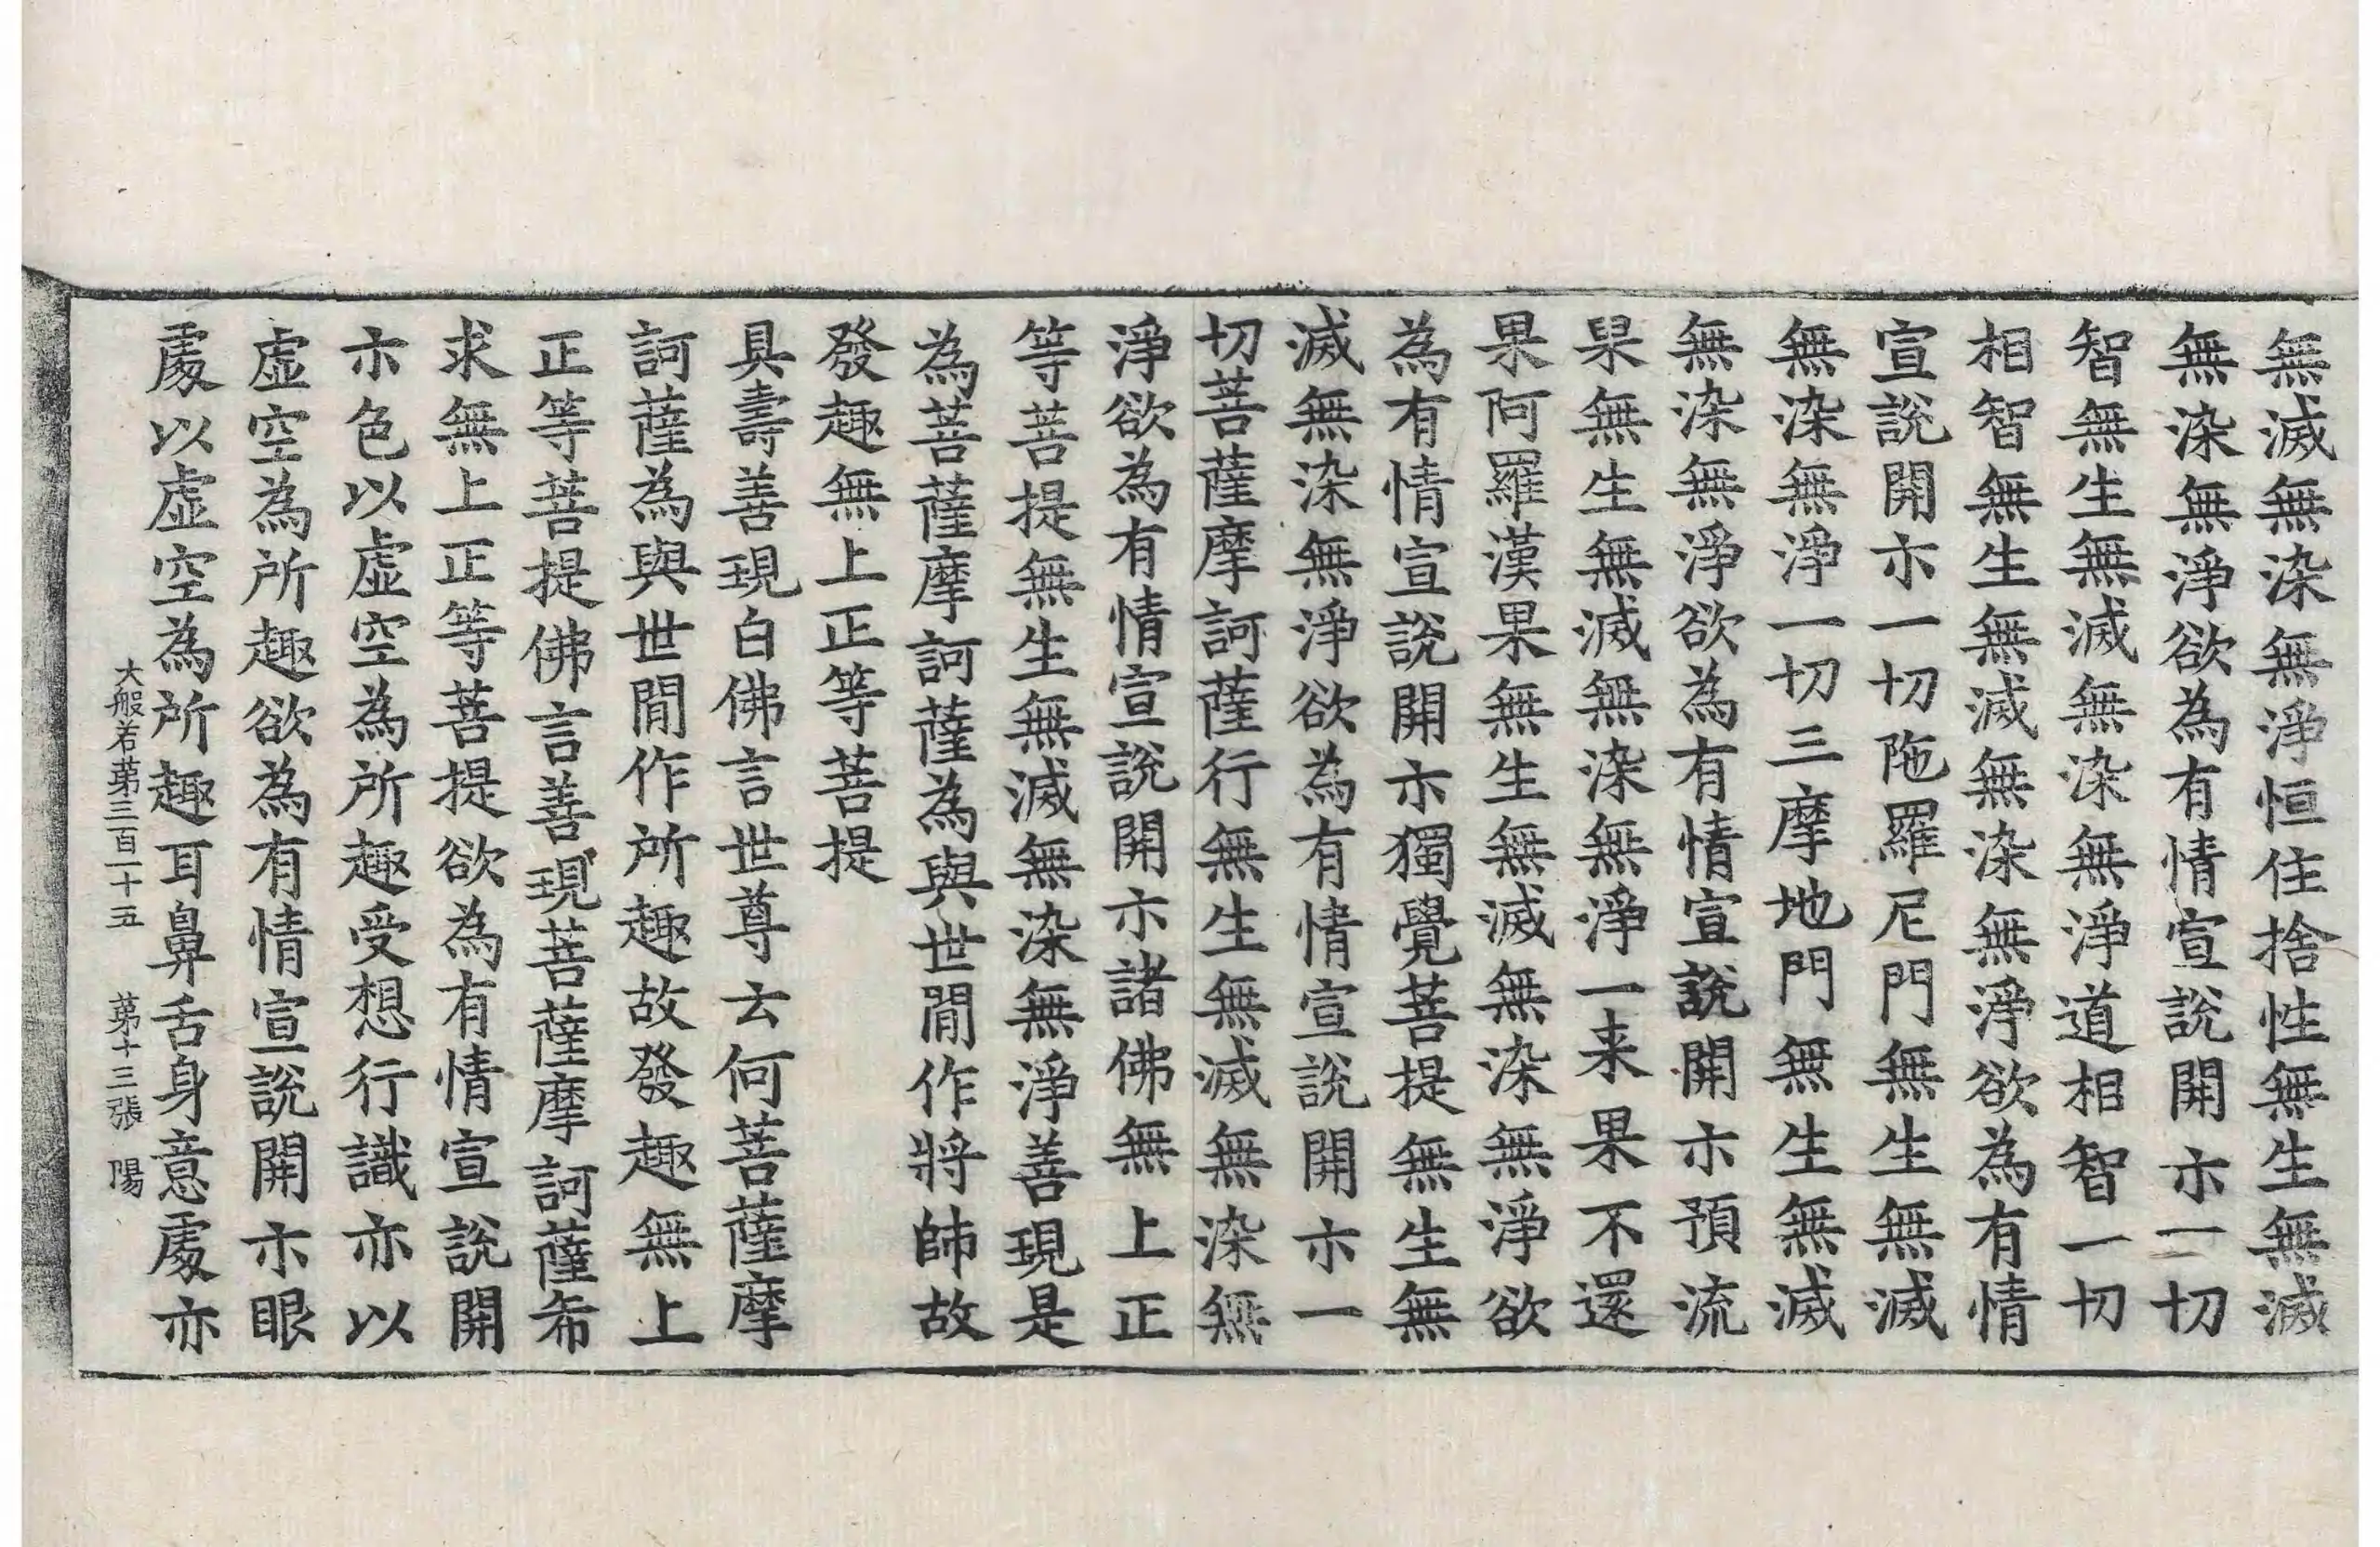 無滅無染無淨恒住捨性無生無滅
無染無淨欲為有情宣說開示一切
智無生無滅無染無淨道相智一切
相智無生無滅無染無淨欲為有情
宣說開示一切陁羅尼門無生無滅
無染無淨一切三摩地門無生無滅
無染無淨欲為有情宣說開示預流
果無生無滅無染無淨一来果不還
果阿羅漢果無生無滅無染無淨欲
為有情宣說開示獨覺菩提無生無
滅無染無淨欲為有情宣說開示一
切菩薩摩訶薩行無生無滅無染無
淨欲為有情宣說開示諸佛無上正
等菩提無生無滅無染無淨善現是
為菩薩摩訶薩為與世間作將師故
發趣無上正等菩提
具壽善現白佛言世尊云何菩薩摩
訶薩為與世間作所趣故發趣無上
正等菩提佛言善現菩薩摩訶薩希
求無上正等菩提欲為有情宣說開
示色以虛空為所趣受想行識亦以
虛空為所趣欲為有情宣說開示眼
處以虛空為所趣耳鼻舌身意處亦
大般若第三百一十五　第十三張　陽